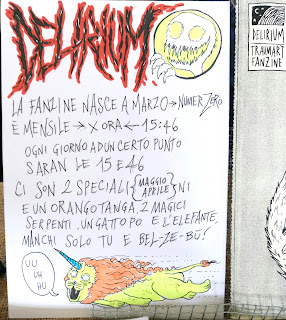 DELIRIUM
LA FANZINE NASCE A MARZO → NUMERZERO
È MENSILE → X ORA ← 15:46
OGNI GIORNO AD UN CERTO PUNTO
SARAN LE 15 E 46
CI SON 2 SPECIALI {MAGGIO APRILE} NI
E UN ORANGOTANGA, 2 MAGICI
SERPENTI, UN GATTO PO E L'ELEFANTE,
MANCHI SOLO TU E BEL-ZE-BÙ!
UU
UH
HU
DELIRIUM
TRAUMART
FANZINE